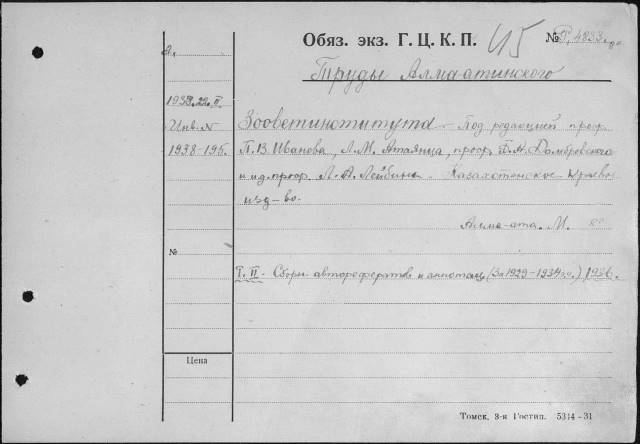 Обяз. экз. Г. Ц. К. П.
№ Р. 4833
Труды Алмаатинского
Зооветинститута – Под редакцией проф.
П. В. Иванова, Л. М. Атаянца, проф. Домбровского
и ид. проф. Л. А. Лейбина. Казахстанское Краевое
изд-во.
Алма-ата. М.
Т. II. Сборн. авторефератов и аннотац. (За 1929–1934 г.г.) 1936.
1938. 22. II
Инв. №
1938-195.
№
Цена
Томск, 3-я Гостип. 5314-31